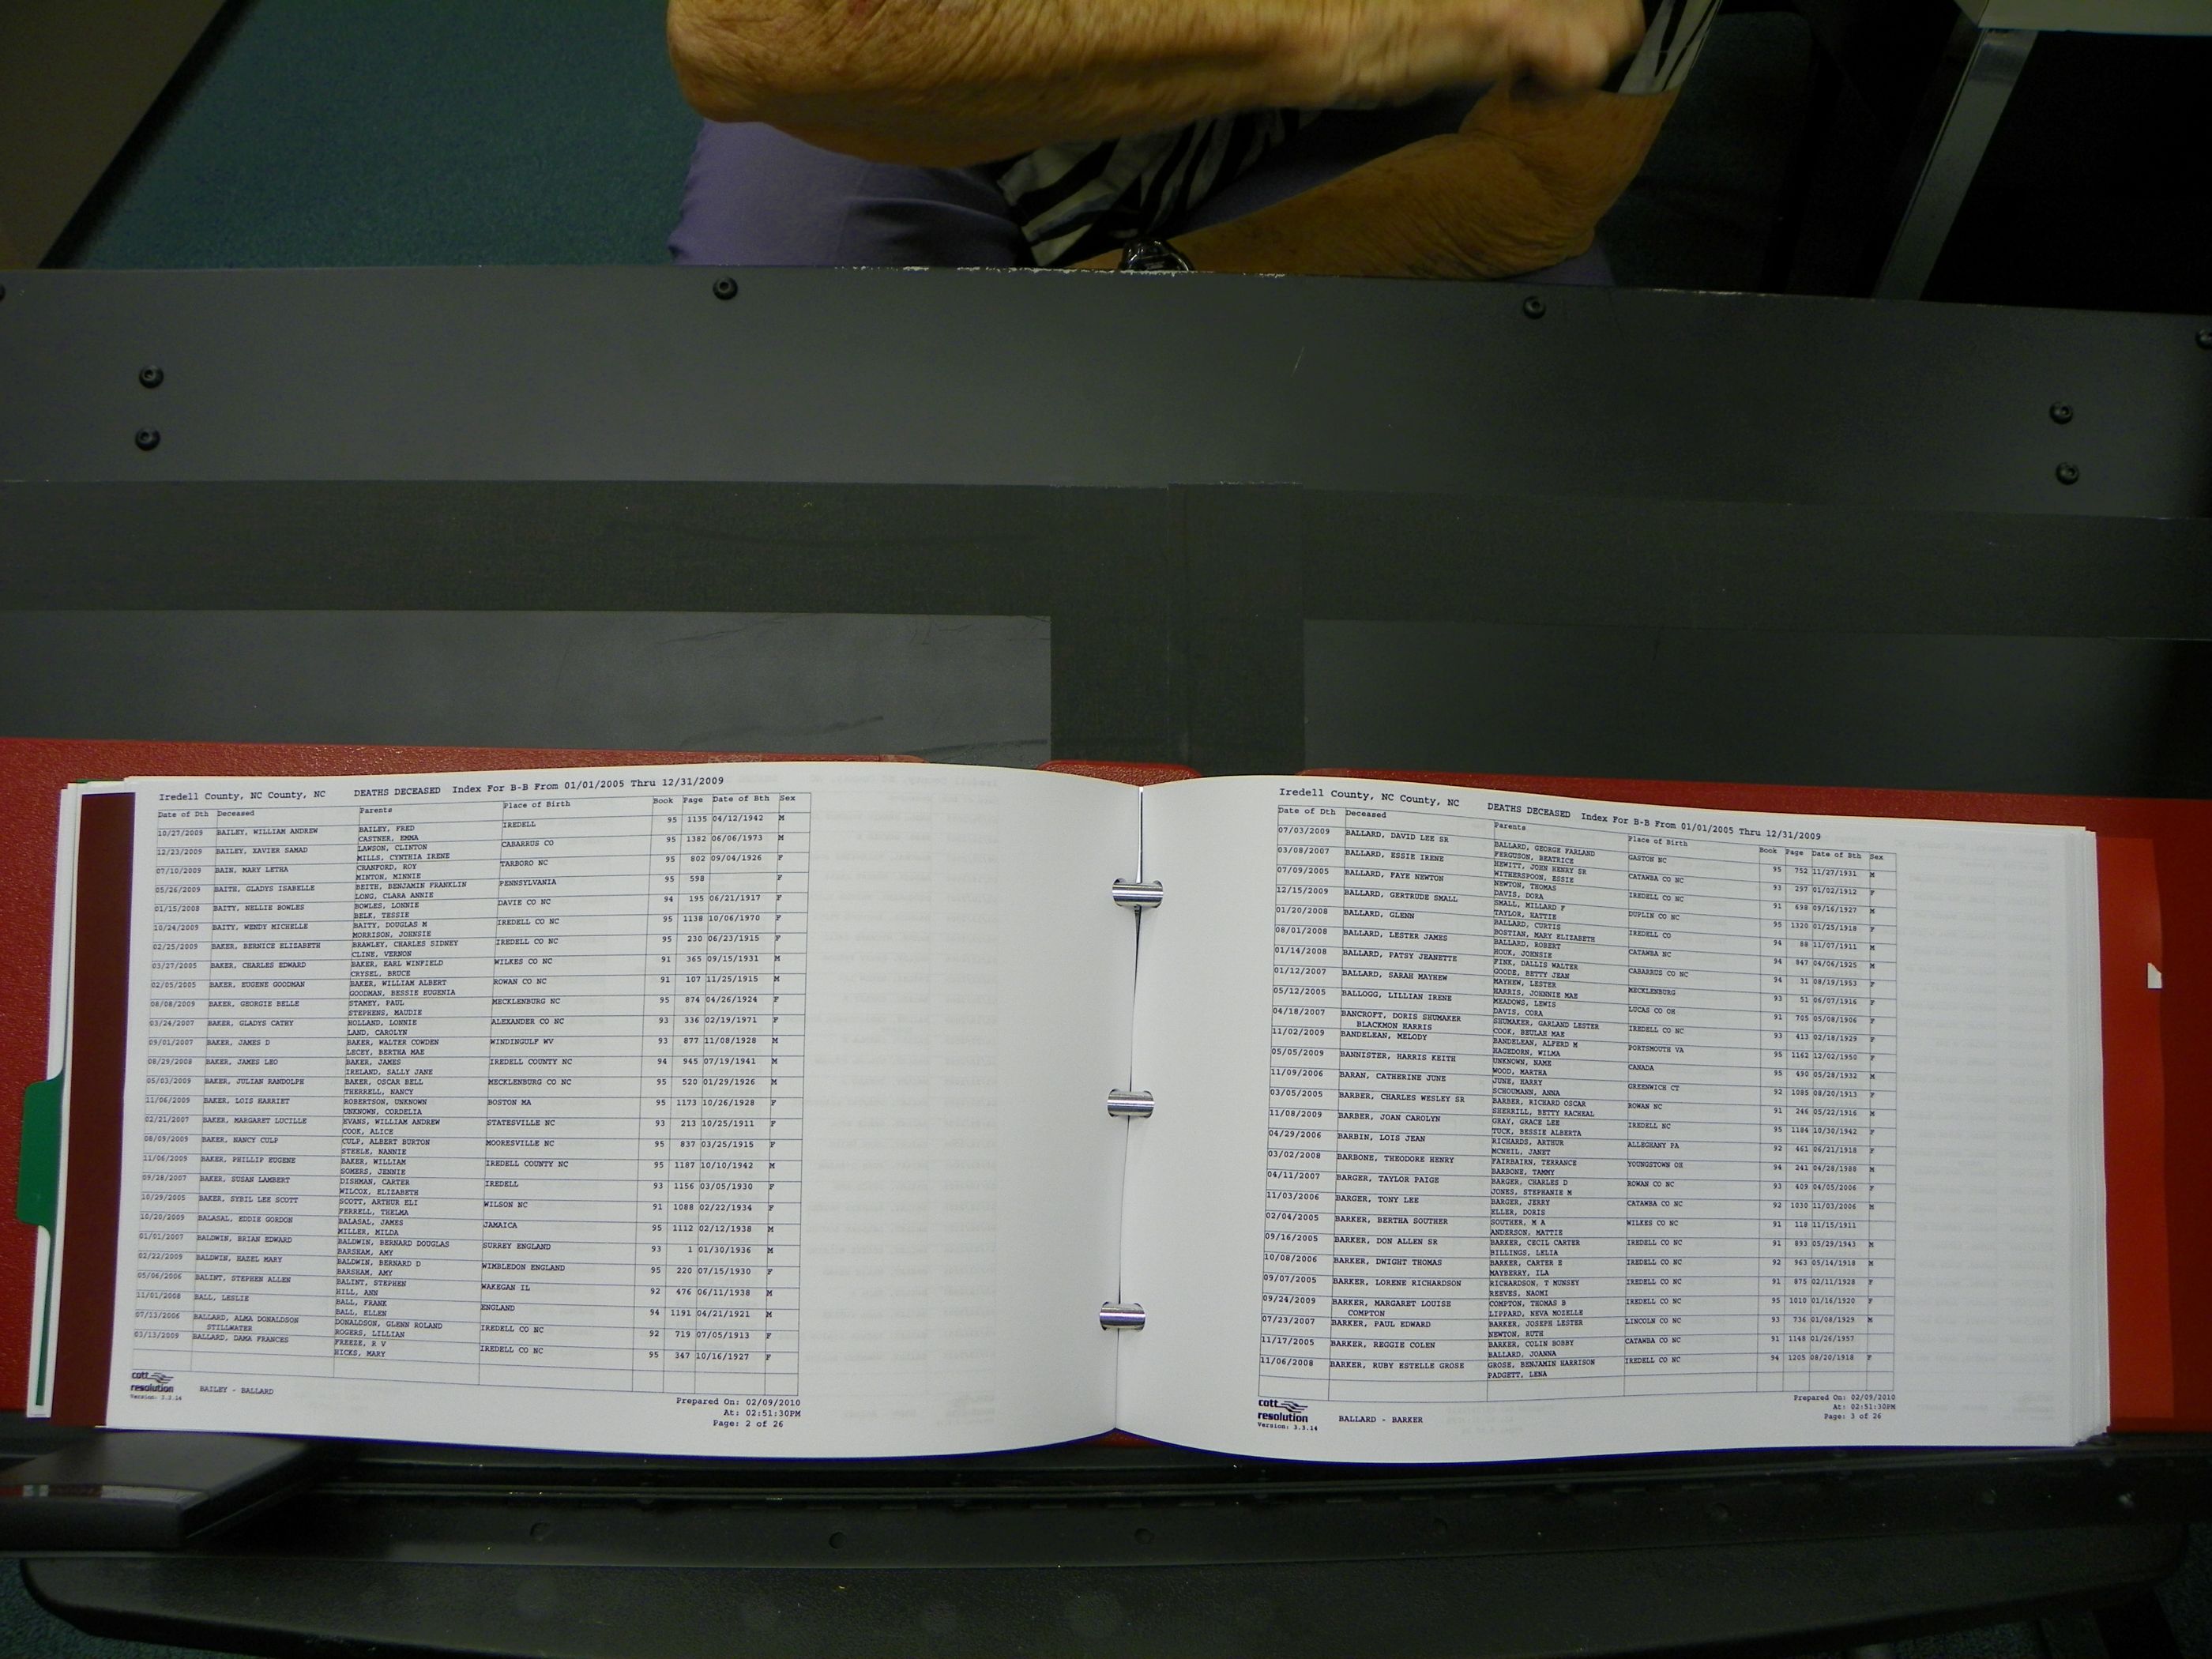 Iredell County, NC County, NC DEATHS DECEASED Index For B-B From 01/01/2005 Thru 12/31/2009
Date of Dth Deceased Parents Place of Birth Book Page Date of Bth Sex
10/27/2009 BAILEY, WILLIAM ANDREW BAILEY, FRED IREDELL 95 1135 04/12/1942 M
CASTNER, EMMA
12/23/2009 BAILEY, XAVIER SAMAD LAWSON, CLINTON CABARRUS CO 95 1382 06/06/1973 M
MILLS, CYNTHIA IRENE
07/10/2009 BAIN, MARY LETHA CRANFORD, ROY TARBORO NC 95 802 09/04/1926 F
MINTON, MINNIE
05/26/2009 BAITH, GLADYS ISABELLE BEITH, BENJAMIN FRANKLIN PENNSYLVANIA 95 598 F
LONG, CLARA ANNIE
01/15/2008 BAITY, NELLIE BOWLES BOWLES, LONNIE DAVIE CO NC 94 195 06/21/1917 F
BELK, TESSIE
10/24/2009 BAITY, WENDY MICHELLE BAITY, DOUGLAS M IREDELL CO NC 95 1138 10/06/1970 F
MORRISON, JOHNSIE
02/25/2009 BAKER, BERNICE ELIZABETH BRAWLEY, CHARLES SIDNEY IREDELL CO NC 95 230 06/23/1915 F
CLINE, VERNON
03/27/2005 BAKER, CHARLES EDWARD BAKER, EARL WINFIELD WILKES CO NC 91 365 09/15/1931 M
CRYSEL, BRUCE
02/05/2005 BAKER, EUGENE GOODMAN BAKER, WILLIAM ALBERT ROWAN CO NC 91 107 11/25/1915 M
GOODMAN, BESSIE EUGENIA
08/08/2009 BAKER, GEORGIE BELLE STAMEY, PAUL MECKLENBURG NC 95 874 04/26/1924 F
STEPHENS, MAUDIE
03/24/2007 BAKER, GLADYS CATHY HOLLAND, LONNIE ALEXANDER CO NC 93 336 02/19/1971 F
LAND, CAROLYN
09/01/2007 BAKER, JAMES D BAKER, WALTER COWDEN WINDINGULF WV 93 877 11/08/1928 M
LECEY, BERTHA MAE
08/29/2008 BAKER, JAMES LEO BAKER, JAMES IREDELL COUNTY NC 94 945 07/19/1941 M
IRELAND, SALLY JANE
05/03/2009 BAKER, JULIAN RANDOLPH BAKER, OSCAR BELL MECKLENBURG CO NC 95 520 01/29/1926 M
THERRELL, NANCY
11/06/2009 BAKER, LOIS HARRIET ROBERTSON, UNKNOWN BOSTON MA 95 1173 10/26/1928 F
UNKNOWN, CORDELIA
02/21/2007 BAKER, MARGARET LUCILLE EVANS, WILLIAM ANDREW STATESVILLE NC 93 213 10/25/1911 F
COOK, ALICE
08/09/2009 BAKER, NANCY CULP CULP, ALBERT BURTON MOORESVILLE NC 95 837 03/25/1915 F
STEELE, NANNIE
11/06/2009 BAKER, PHILLIP EUGENE BAKER, WILLIAM IREDELL COUNTY NC 95 1187 10/10/1942 M
SOMERS, JENNIE
09/28/2007 BAKER, SUSAN LAMBERT DISHMAN, CARTER IREDELL 93 1156 03/05/1930 F
WILCOX, ELIZABETH
10/29/2005 BAKER, SYBIL LEE SCOTT SCOTT, ARTHUR ELI WILSON NC 91 1088 02/22/1934 F
FERRELL, THELMA
10/20/2009 BALASAL, EDDIE GORDON BALASAL, JAMES JAMAICA 95 1112 02/12/1938 M
MILLER, MILDA
01/01/2007 BALDWIN, BRIAN EDWARD BALDWIN, BERNARD DOUGLAS SURREY ENGLAND 93 1 01/30/1936 M
BARSHAM, AMY
02/22/2009 BALDWIN, HAZEL MARY BALDWIN, BERNARD D WIMBLEDON ENGLAND 95 220 07/15/1930 F
BARSHAM, AMY
05/06/2006 BALINT, STEPHEN ALLEN BALINT, STEPHEN WAKEGAN IL 92 476 06/11/1938 M
HILL, ANN
11/01/2008 BALL, LESLIE BALL, FRANK ENGLAND 94 1191 04/21/1921 M
BALL, ELLEN
07/13/2006 BALLARD, ALMA DONALDSON DONALDSON, GLENN ROLAND IREDELL CO NC 92 719 07/05/1913 F
STILLWATER ROGERS, LILLIAN
03/13/2009 BALLARD, DAMA FRANCES FREEZE, R V IREDELL CO NC 95 347 10/16/1927 F
HICKS, MARY
cott
resolution
Version: 3.3.14
BAILEY - BALLARD
Prepared On: 02/09/2010
At: 02:51:30PM
Page: 2 of 26
Iredell County, NC County, NC DEATHS DECEASED Index For B-B From 01/01/2005 Thru 12/31/2009
Date of Dth Deceased Parents Place of Birth Book Page Date of Bth Sex
07/03/2009 BALLARD, DAVID LEE SR BALLARD, GEORGE FARLAND GASTON NC 95 752 11/27/1931 M
FERGUSON, BEATRICE
03/08/2007 BALLARD, ESSIE IRENE HEWITT, JOHN HENRY SR CATAWBA CO NC 93 297 01/02/1912 F
WITHERSPOON, ESSIE
07/09/2005 BALLARD, FAYE NEWTON NEWTON, THOMAS IREDELL CO NC 91 698 09/16/1927 M
DAVIS, DORA
12/15/2009 BALLARD, GERTRUDE SMALL SMALL, MILLARD F DUPLIN CO NC 95 1320 01/25/1918 F
TAYLOR, HATTIE
01/20/2008 BALLARD, GLENN BALLARD, CURTIS IREDELL CO 94 88 11/07/1911 M
BOSTIAN, MARY ELIZABETH
08/01/2008 BALLARD, LESTER JAMES BALLARD, ROBERT CATAWBA NC 94 847 04/06/1925 M
HOUK, JOHNSIE
01/14/2008 BALLARD, PATSY JEANETTE FINK, DALLIS WALTER CABARRUS CO NC 94 31 08/19/1953 F
GOODE, BETTY JEAN
01/12/2007 BALLARD, SARAH MAYHEW MAYHEW, LESTER MECKLENBURG 93 51 06/07/1916 F
HARRIS, JOHNNIE MAE
05/12/2005 BALLOGG, LILLIAN IRENE MEADOWS, LEWIS LUCAS CO OH 91 705 05/08/1906 F
DAVIS, CORA
04/18/2007 BANCROFT, DORIS SHUMAKER SHUMAKER, GARLAND LESTER IREDELL CO NC 93 413 02/18/1929 F
BLACKMON HARRIS COOK, BEULAH MAE
11/02/2009 BANDELEAN, MELODY BANDELEAN, ALFERD M PORTSMOUTH VA 95 1162 12/02/1950 F
HAGEDORN, WILMA
05/05/2009 BANNISTER, HARRIS KEITH UNKNOWN, NAME CANADA 95 490 05/28/1932 M
WOOD, MARTHA
11/09/2006 BARAN, CATHERINE JUNE JUNE, HARRY GREENWICH CT 92 1085 08/20/1913 F
SCHOUMANN, ANNA
03/05/2005 BARBER, CHARLES WESLEY SR BARBER, RICHARD OSCAR ROWAN NC 91 246 05/22/1916 M
SHERRILL, BETTY RACHEAL
11/08/2009 BARBER, JOAN CAROLYN GRAY, GRACE LEE IREDELL NC 95 1184 10/30/1942 F
TUCK, BESSIE ALBERTA
04/29/2006 BARBIN, LOIS JEAN RICHARDS, ARTHUR ALLEGHANY PA 92 461 06/21/1918 F
MCNEIL, JANET
03/02/2008 BARBONE, THEODORE HENRY FAIRBAIRN, TERRANCE YOUNGSTOWN OH 94 241 04/28/1988 M
BARBONE, TAMMY
04/11/2007 BARGER, TAYLOR PAIGE BARGER, CHARLES D ROWAN CO NC 93 409 04/05/2006 F
JONES, STEPHANIE M
11/03/2006 BARGER, TONY LEE BARGER, JERRY CATAWBA CO NC 92 1030 11/03/2006 M
ELLER, DORIS
02/04/2005 BARKER, BERTHA SOUTHER SOUTHER, M A WILKES CO NC 91 118 11/15/1911
ANDERSON, MATTIE
09/16/2005 BARKER, DON ALLEN SR BARKER, CECIL CARTER IREDELL CO NC 91 893 05/29/1943 M
BILLINGS, LELIA
10/08/2006 BARKER, DWIGHT THOMAS BARKER, CARTER E IREDELL CO NC 92 963 05/14/1918 M
MAYBERRY, ILA
09/07/2005 BARKER, LORENE RICHARDSON RICHARDSON, T MUNSEY IREDELL CO NC 91 875 02/11/1928 F
REEVES, NAOMI
09/24/2009 BARKER, MARGARET LOUISE COMPTON, THOMAS B IREDELL CO NC 95 1010 01/16/1920 F
COMPTON LIPPARD, NEVA MOZELLE
07/23/2007 BARKER, PAUL EDWARD BARKER, JOSEPH LESTER LINCOLN CO NC 93 736 01/08/1929 M
NEWTON, RUTH
11/17/2005 BARKER, REGGIE COLEN BARKER, COLIN BOBBY CATAWBA CO NC 91 1148 01/26/1957
BALLARD, JOANNA
11/06/2008 BARKER, RUBY ESTELLE GROSE GROSE, BENJAMIN HARRISON IREDELL CO NC 94 1205 08/20/1918 F
PADGETT, LENA
cott
resolution
Version: 3.3.14
BALLARD - BARKER
Prepared On: 02/09/2010
At: 02:51:30PM
Page: 3 of 26